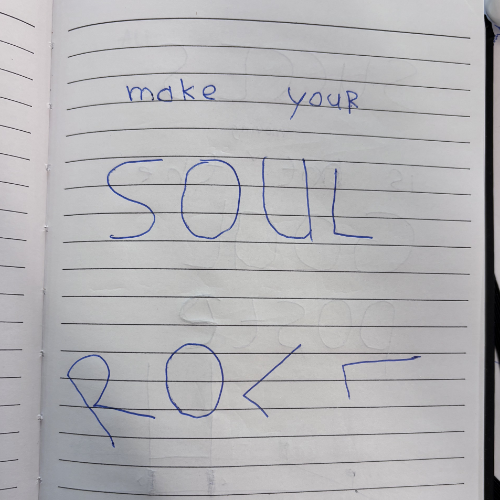 make your
SOUL
RO< Γ